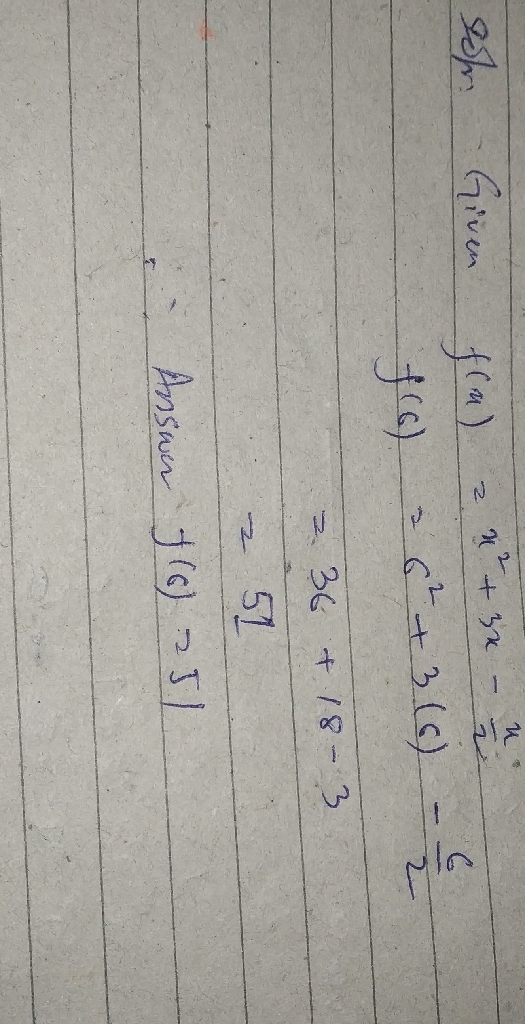 Soln: Given f(x) = x² + 3x - x/2
f(6) = 6² + 3(6) - 6/2
= 36 + 18 - 3
= 51
∴ Answer f(6) = 51